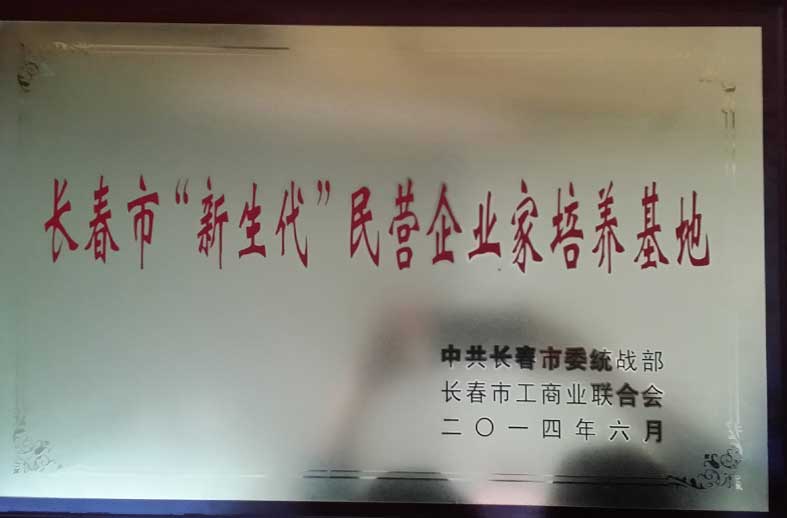 长春市“新生代”民营企业家培养基地
中共长春市委统战部
长春市工商业联合会
二〇一四年六月